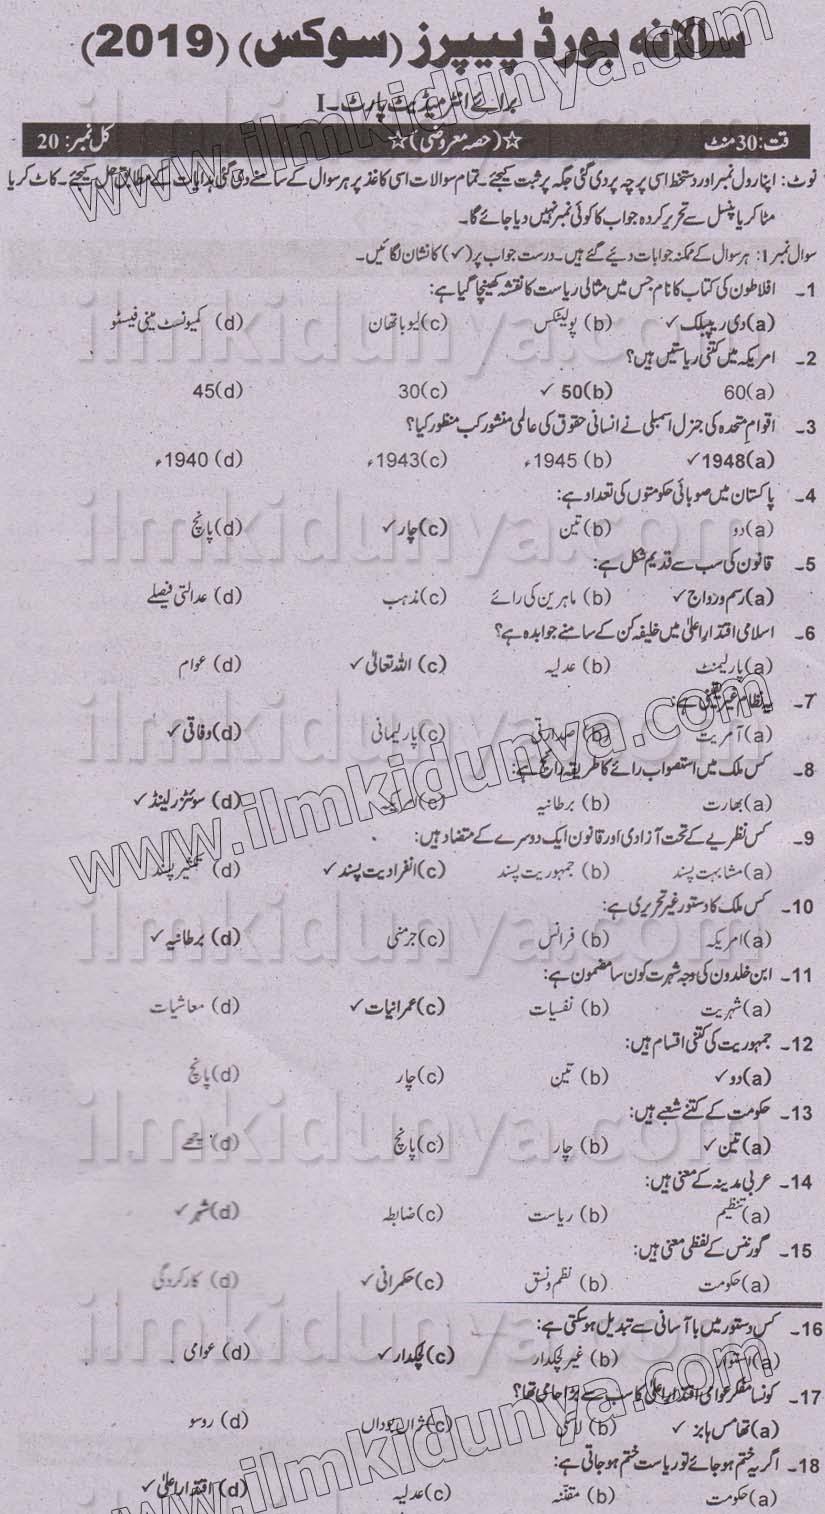 سالانہ بورڈ پیپرز (سوکس) (2019)
برائے انٹرمیڈیٹ پارٹ۔ I
قت: 30 منٹ ☆(حصہ معروضی)☆ کل نمبر: 20
نوٹ: اپنا رول نمبر اور دستخط اسی پرچہ پر دی گئی جگہ پر ثبت کیجئے۔ تمام سوالات اسی کاغذ پر ہر سوال کے سامنے دی گئی ہدایات کے مطابق حل کیجئے۔ کاٹ کر یا
مٹا کر یا پنسل سے تحریر کردہ جواب کا کوئی نمبر نہیں دیا جائے گا۔
سوال نمبر 1: ہر سوال کے ممکنہ جوابات دیئے گئے ہیں۔ درست جواب پر (✓) کا نشان لگائیں۔
1۔ افلاطون کی کتاب کا نام جس میں مثالی ریاست کا نقشہ کھینچا گیا ہے:
(a) دی ریپبلک ✓ (b) پولیٹکس (c) لیویاتھان (d) کمیونسٹ مینی فیسٹو
2۔ امریکہ میں کتنی ریاستیں ہیں؟
(a) 60 (b) 50 ✓ (c) 30 (d) 45
3۔ اقوام متحدہ کی جنرل اسمبلی نے انسانی حقوق کی عالمی منشور کب منظور کیا؟
(a) 1948 ✓ (b) 1945ء (c) 1943ء (d) 1940ء
4۔ پاکستان میں صوبائی حکومتوں کی تعداد ہے:
(a) دو (b) تین (c) چار ✓ (d) پانچ
5۔ قانون کی سب سے قدیم شکل ہے:
(a) رسم و رواج ✓ (b) ماہرین کی رائے (c) مذہب (d) عدالتی فیصلے
6۔ اسلامی اقتدارِ اعلیٰ میں خلیفہ کن کے سامنے جوابدہ ہے؟
(a) پارلیمنٹ (b) عدلیہ (c) اللہ تعالیٰ ✓ (d) عوام
7۔ یہ نظام غیر یقینی ہے:
(a) آمریت (b) صدارتی (c) پارلیمانی (d) وفاقی ✓
8۔ کس ملک میں استصواب رائے کا طریقہ رائج ہے:
(a) بھارت (b) برطانیہ (c) امریکہ (d) سوئٹزرلینڈ ✓
9۔ کس نظریے کے تحت آزادی اور قانون ایک دوسرے کے متضاد ہیں:
(a) مشابہت پسند (b) جمہوریت پسند (c) انفرادیت پسند ✓ (d) تکثیر پسند
10۔ کس ملک کا دستور غیر تحریری ہے:
(a) امریکہ (b) فرانس (c) جرمنی (d) برطانیہ ✓
11۔ ابن خلدون کی وجہ شہرت کون سا مضمون ہے:
(a) شہریت (b) نفسیات (c) عمرانیات ✓ (d) معاشیات
12۔ جمہوریت کی کتنی اقسام ہیں:
(a) دو ✓ (b) تین (c) چار (d) پانچ
13۔ حکومت کے کتنے شعبے ہیں:
(a) تین ✓ (b) چار (c) پانچ (d) چھے
14۔ عربی مدینہ کے معنی ہیں:
(a) تنظیم (b) ریاست (c) ضابطہ (d) شہر ✓
15۔ گورننس کے لفظی معنی ہیں:
(a) حکومت (b) نظم و نسق (c) حکمرانی ✓ (d) کارکردگی
16۔ کس دستور میں باآسانی سے تبدیل ہو سکتی ہے:
(a) استوار (b) غیر لچکدار (c) لچکدار ✓ (d) عوامی
17۔ کونسا مفکر عوامی اقتدارِ اعلیٰ کا سب سے بڑا حامی تھا؟
(a) تھامس ہابز ✓ (b) لاسکی (c) ژاں بوداں (d) روسو
18۔ اگر یہ ختم ہو جائے تو ریاست ختم ہو جاتی ہے:
(a) حکومت (b) مقننہ (c) عدلیہ (d) اقتدارِ اعلیٰ ✓
www.ilmkidunya.com